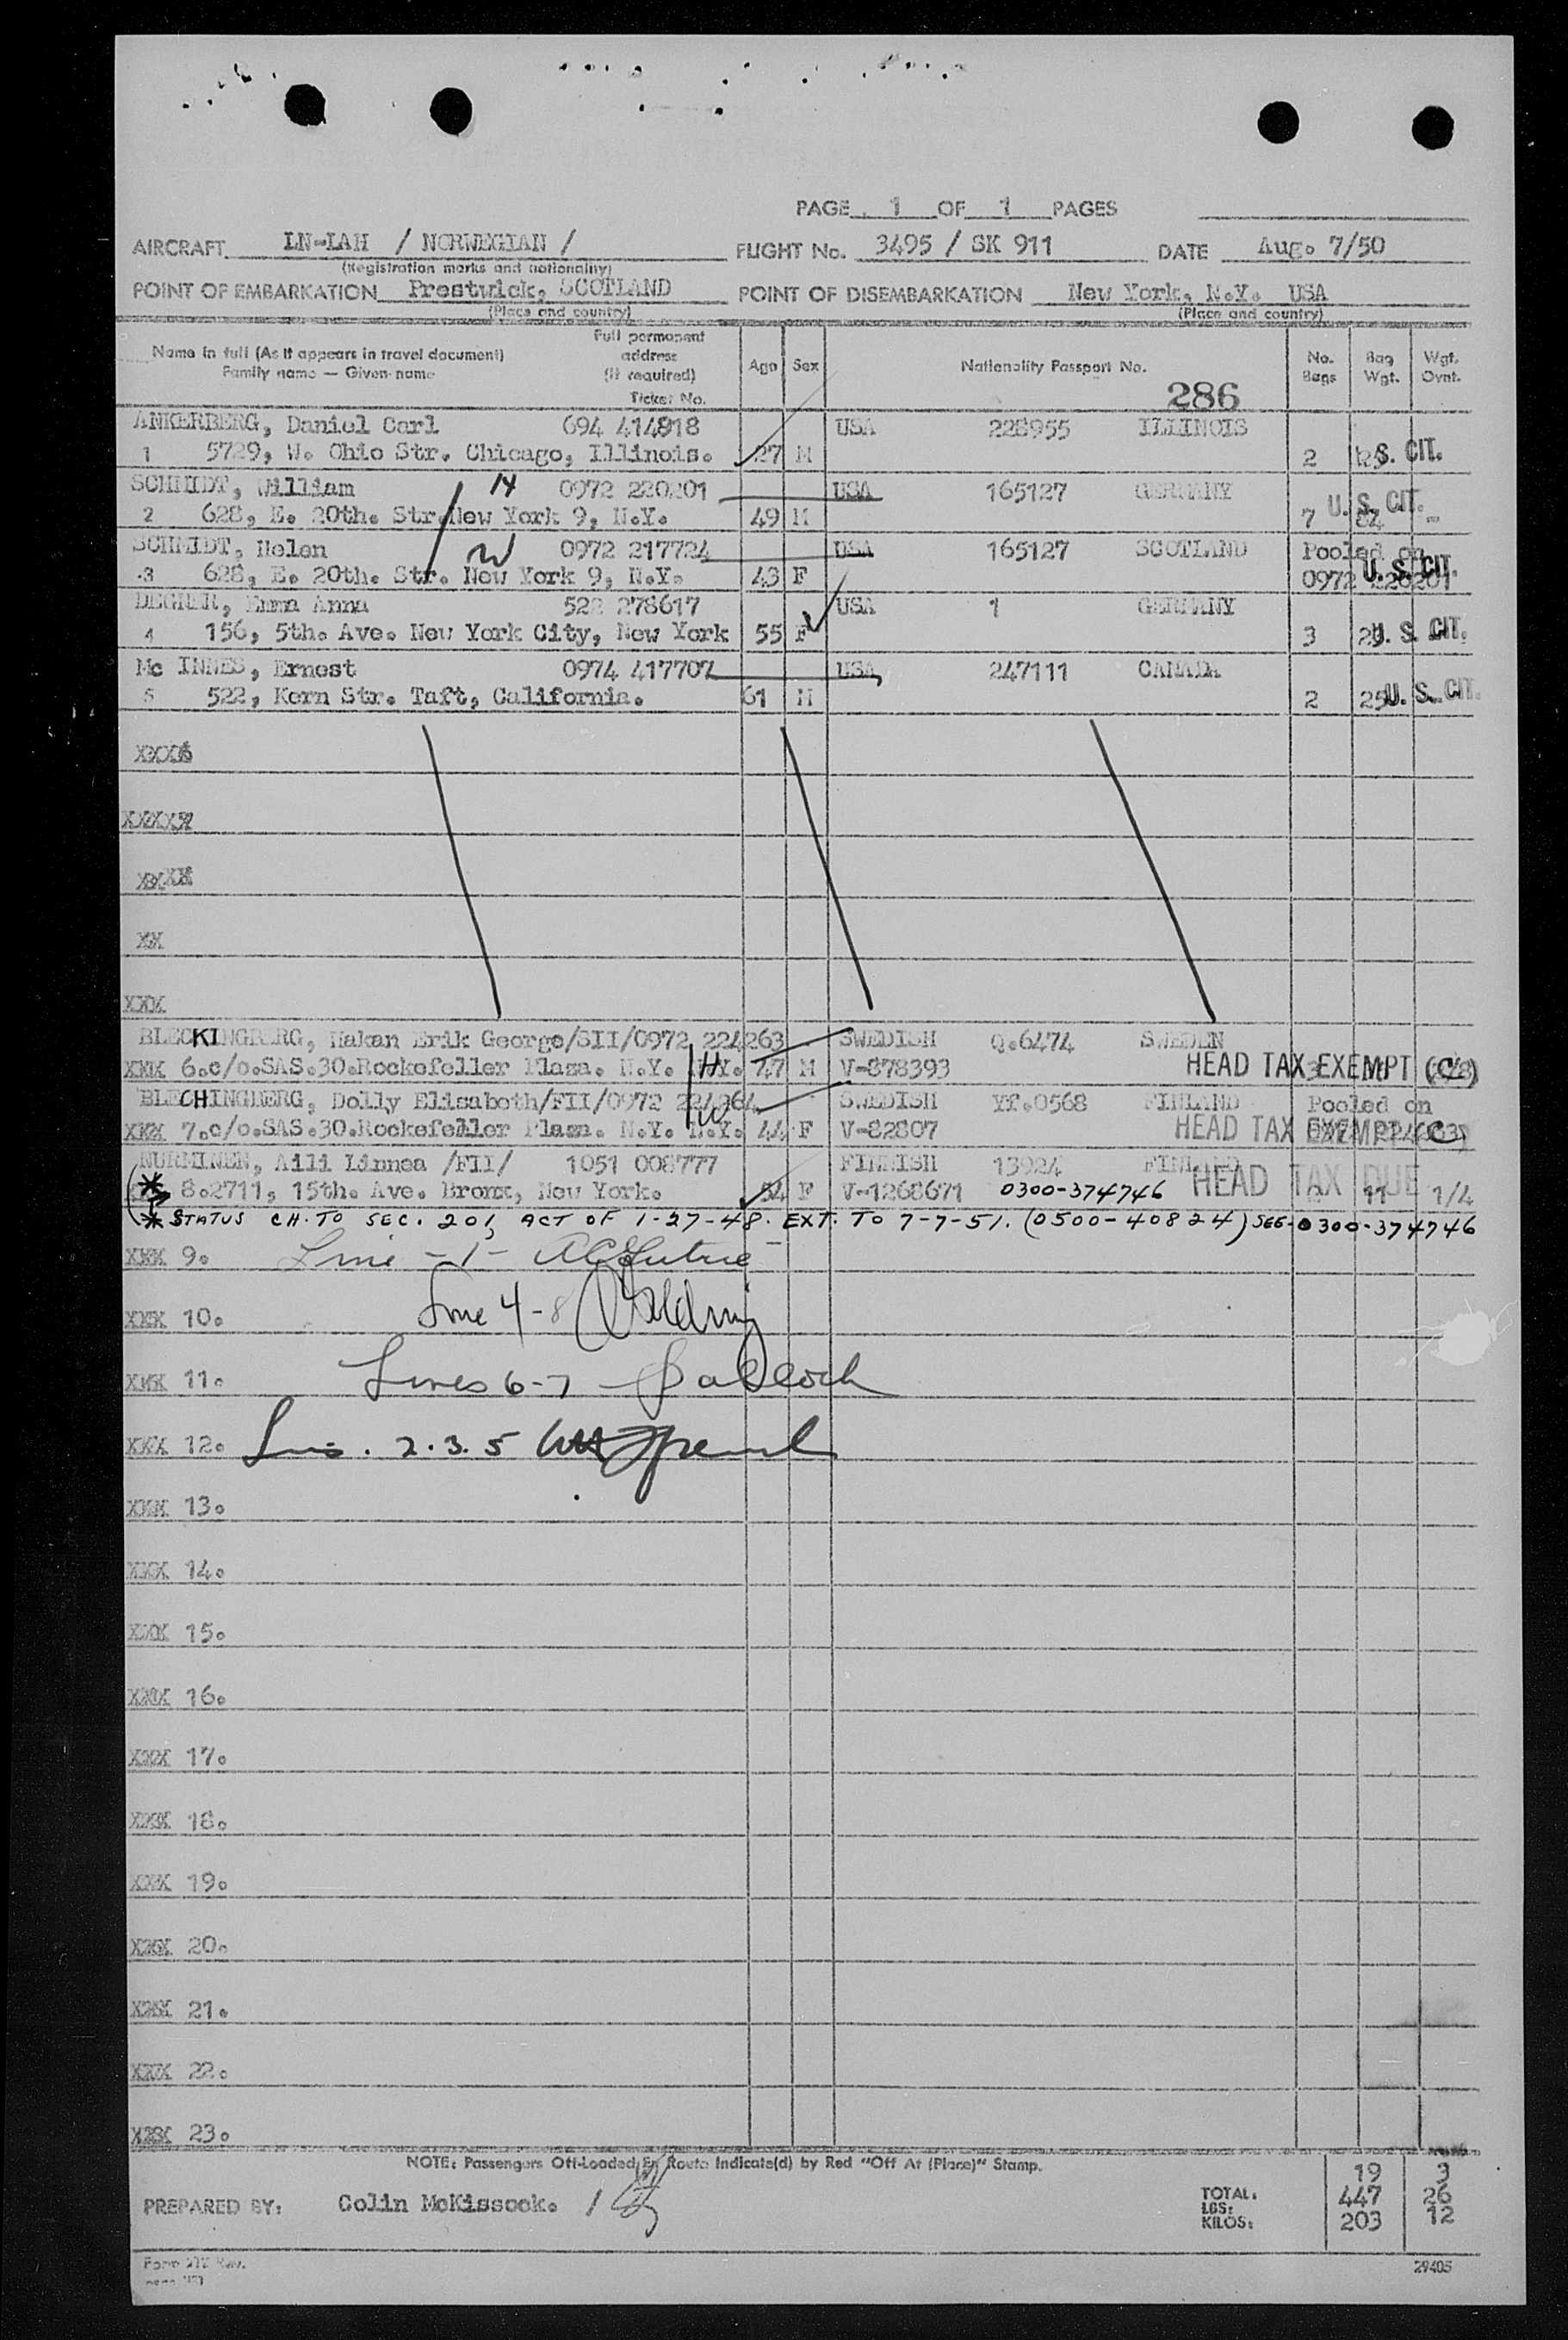 PAGE 1 OF 1 PAGES
AIRCRAFT LN-LAH / NORWEGIAN / FLIGHT No. 3495 / SK 911 DATE Aug. 7/50
(Registration marks and nationality)
POINT OF EMBARKATION Prestwick, SCOTLAND POINT OF DISEMBARKATION New York, N.Y. USA
(Place and country) (Place and country)
Name in full (As it appears in travel document) Family name — Given name Full permanent address (if required) Ticket No. Age Sex Nationality Passport No. No. Bags Bag Wgt. Wgt. Ovnt.
286
ANKERBERG, Daniel Carl 694 414818 USA 228955 ILLINOIS
1 5729, W. Ohio Str. Chicago, Illinois. 27 M 2 U.S. CIT.
SCHMIDT, William H 0972 220201 USA 165127 GERMANY
2 628, E. 20th. Str. New York 9, N.Y. 49 M 7 84 U. S. CIT.
SCHMIDT, Helen W 0972 217724 USA 165127 SCOTLAND Pooled on
3 628, E. 20th. Str. New York 9, N.Y. 43 F 0972 220201 U. S. CIT.
DEGNER, Emma Anna 522 278617 USA 1 GERMANY
4 156, 5th. Ave. New York City, New York 55 F 3 U. S. CIT.
Mc INNES, Ernest 0974 417707 USA 247111 CANADA
5 522, Kern Str. Taft, California. 61 M 2 25 U. S. CIT.
XXX6
XXXXX
XXXX
XX
XXX
BLECKINGBERG, Hakan Erik George/SII/0972 224263 SWEDISH Q.6474 SWEDEN
XXX 6.c/o.SAS.30.Rockefeller Plaza. N.Y. N.Y. H 47 M V-878393 HEAD TAX EXEMPT (C)
BLECHINGBERG, Dolly Elisabeth/FII/0972 224264 SWEDISH YF.0568 FINLAND Pooled on
XXX 7.c/o.SAS.30.Rockefeller Plaza. N.Y. N.Y. W 44 F V-82807 HEAD TAX EXEMPT (C)
NURMINEN, Aili Linnea /FII/ 1051 008777 FINNISH 13924 FINLAND
* 8.2711, 15th. Ave. Bronx, New York. 54 F V-1268671 0300-374746 HEAD TAX DUE 11 1/4
* STATUS CH. TO SEC. 201, ACT OF 1-27-48. EXT. TO 7-7-51. (0500-40824) SEE-0300-374746
XXX 9. Line -1-
XXX 10. Line 4-8 Baldwin
XXX 11. Lines 6-7 - Babcock
XXX 12. Lns. 2.3.5
XXX 13.
XXX 14.
XXX 15.
XXX 16.
XXX 17.
XXX 18.
XXX 19.
XXX 20.
XXX 21.
XXX 22.
XXX 23.
NOTE: Passengers Off-Loaded En Route Indicate(d) by Red "Off At (Place)" Stamp.
19 3
PREPARED BY: Colin McKissock. / TOTAL: LBS: 447 26
KILOS: 203 12
29405